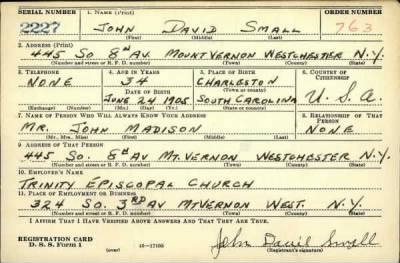 SERIAL NUMBER 1. NAME (Print) ORDER NUMBER
2227 JOHN DAVID SMALL 763
(First) (Middle) (Last)
2. ADDRESS (Print)
445 SO 8th AV. MOUNT VERNON WESTCHESTER N.Y.
(Number and street or R. F. D. number) (Town) (County) (State)
3. TELEPHONE 4. AGE IN YEARS 5. PLACE OF BIRTH 6. COUNTRY OF CITIZENSHIP
NONE 34 CHARLESTON
DATE OF BIRTH (Town or county)
JUNE 24 1905 SOUTH CAROLINA U.S.A.
(Exchange) (Number) (Mo.) (Day) (Yr.) (State or country)
7. NAME OF PERSON WHO WILL ALWAYS KNOW YOUR ADDRESS 8. RELATIONSHIP OF THAT PERSON
MR. JOHN MADISON NONE
(Mr., Mrs., Miss) (First) (Middle) (Last)
9. ADDRESS OF THAT PERSON
445 SO. 8th AV MT. VERNON WESTCHESTER N.Y.
(Number and street or R. F. D. number) (Town) (County) (State)
10. EMPLOYER'S NAME
TRINITY EPISCOPAL CHURCH
11. PLACE OF EMPLOYMENT OR BUSINESS
324 SO. 3RD AV MT VERNON WEST. N.Y.
(Number and street or R. F. D. number) (Town) (County) (State)
I AFFIRM THAT I HAVE VERIFIED ABOVE ANSWERS AND THAT THEY ARE TRUE.
REGISTRATION CARD
D. S. S. FORM 1 (over) 16-17105 John David Small
(Registrant's signature)